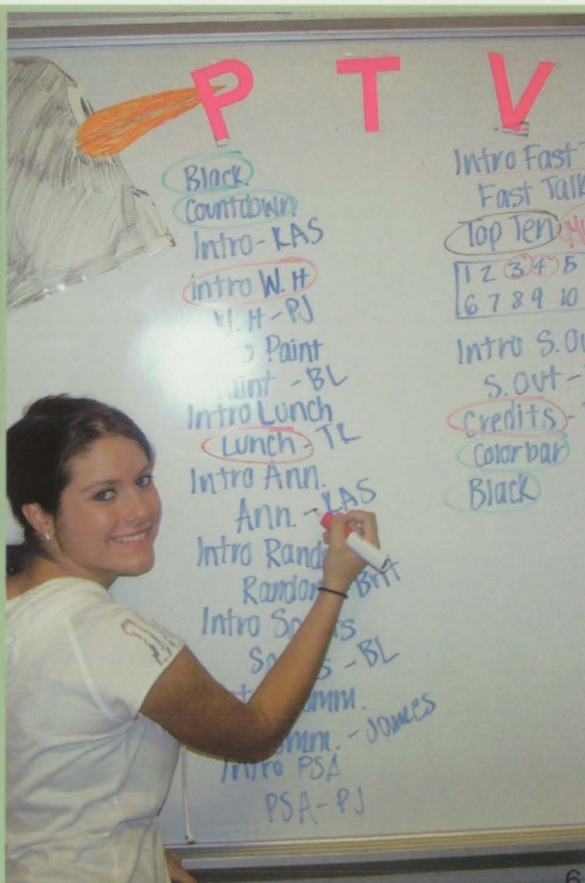 P T V
Black
Countdown!
Intro-KAS
intro W.H
W.H-PJ
Paint
-BL
Intro Lunch
Lunch-TL
Intro Ann.
Ann.-KAS
Intro
-Britt
Intro
-BL
-James
Intro PSA
PSA-PJ
Intro Fast
Fast Talk
Top Ten
1 2 3 4 5
6 7 8 9 10
Intro S.
S.Out-
Credits-
Colorbar
Black
6